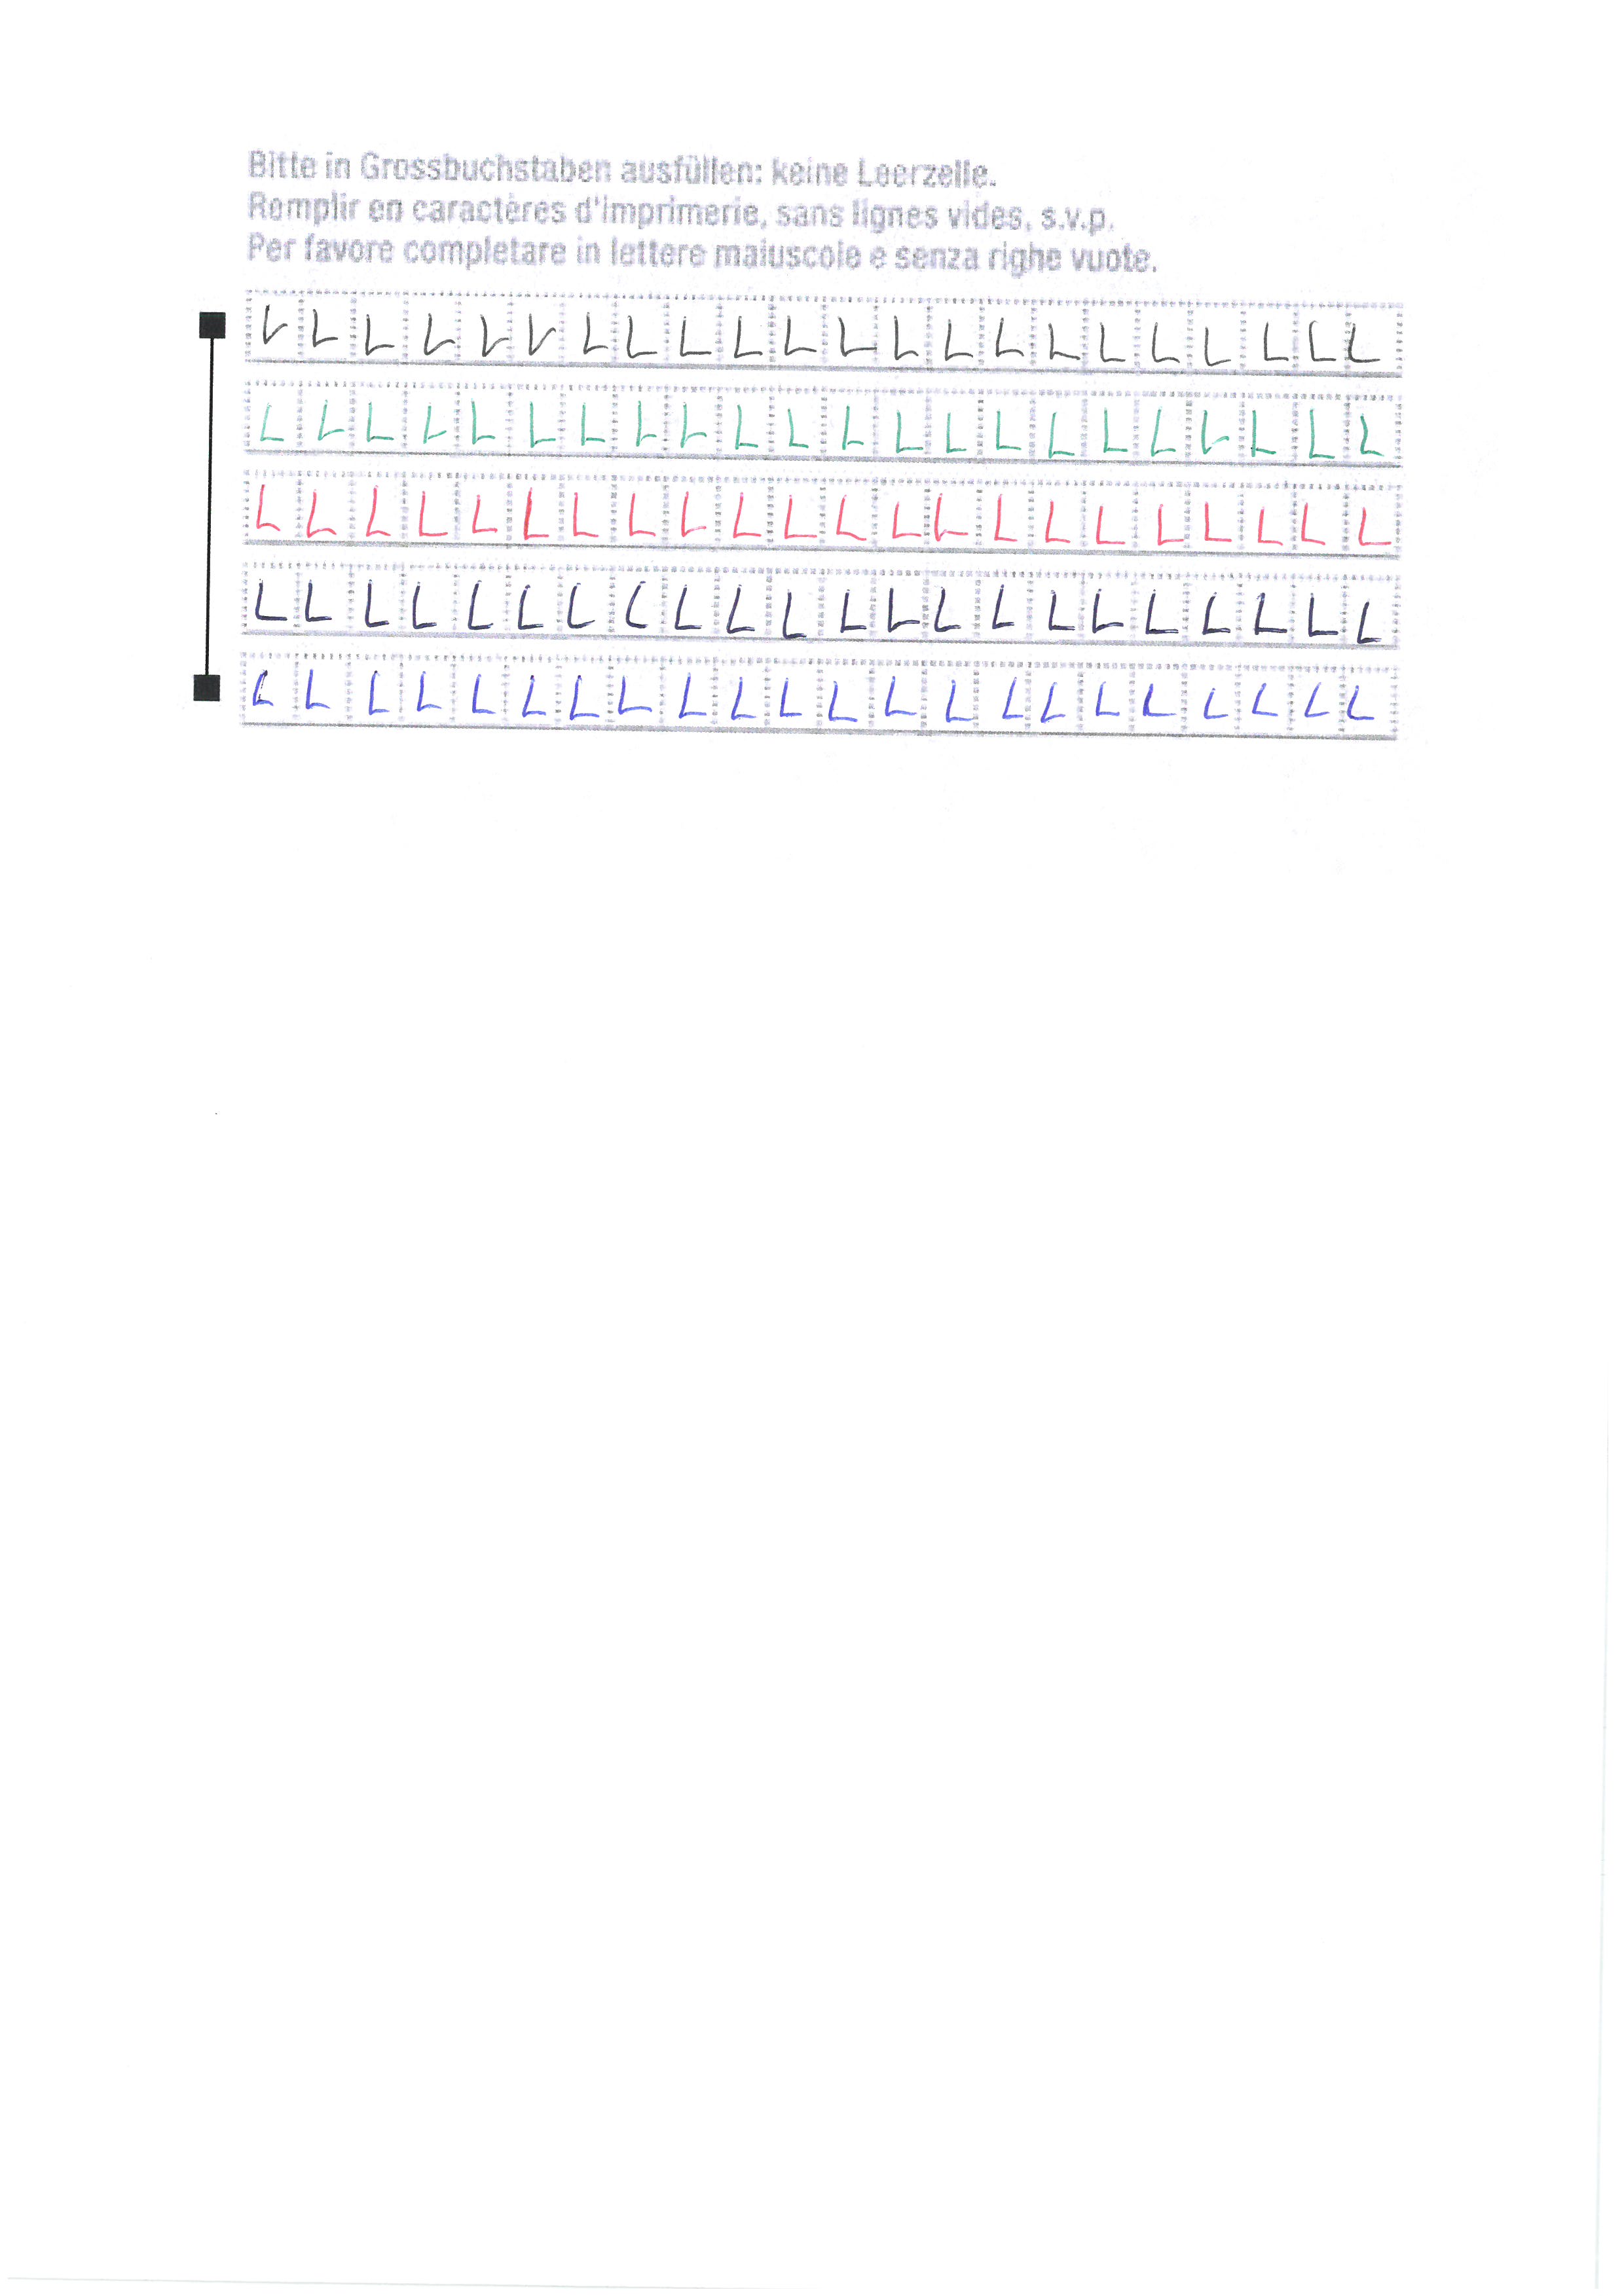 Bitte in Grossbuchstaben ausfüllen: keine Leerzelle.
Remplir en caractères d'imprimerie, sans lignes vides, s.v.p.
Per favore completare in lettere maiuscole e senza righe vuote.
L L L L L L L L L L L L L L L L L L L L L L
L L L L L L L L L L L L L L L L L L L L L L
L L L L L L L L L L L L L L L L L L L L L L
L L L L L L L L L L L L L L L L L L L L L L
L L L L L L L L L L L L L L L L L L L L L L